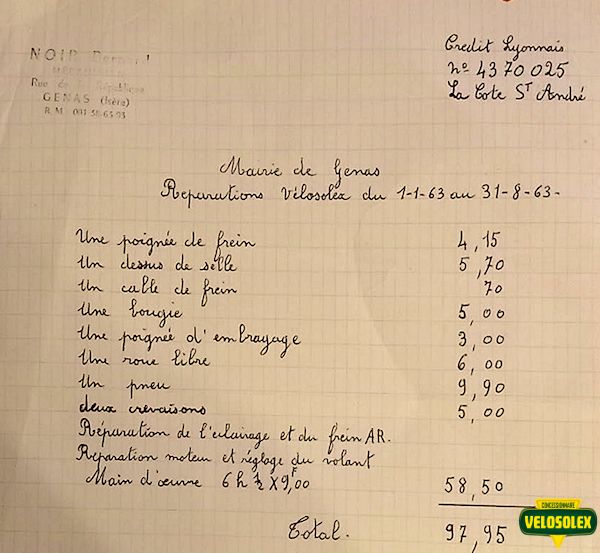 NOIR Bernard
Credit Lyonnais
nº 4370025
La Cote Sᵀ André
Rue de la République
GENAS (Isère)
R. M. 001-58-65-93
Mairie de Genas
Reparations Vélosolex du 1-1-63 au 31-8-63-
Une poignée de frein 4,15
Un dessus de selle 5,70
Un cable de frein 70
Une bougie 5,00
Une poignée d'embrayage 3,00
Une roue libre 6,00
Un pneu 9,90
deux crevaisons 5,00
Réparation de l'eclairage et du frein AR.
Reparation moteur et réglage du volant
Main d'œuvre 6 h ½ X 9F,00 58,50
Total. 97,95
CONCESSIONNAIRE
VELOSOLEX